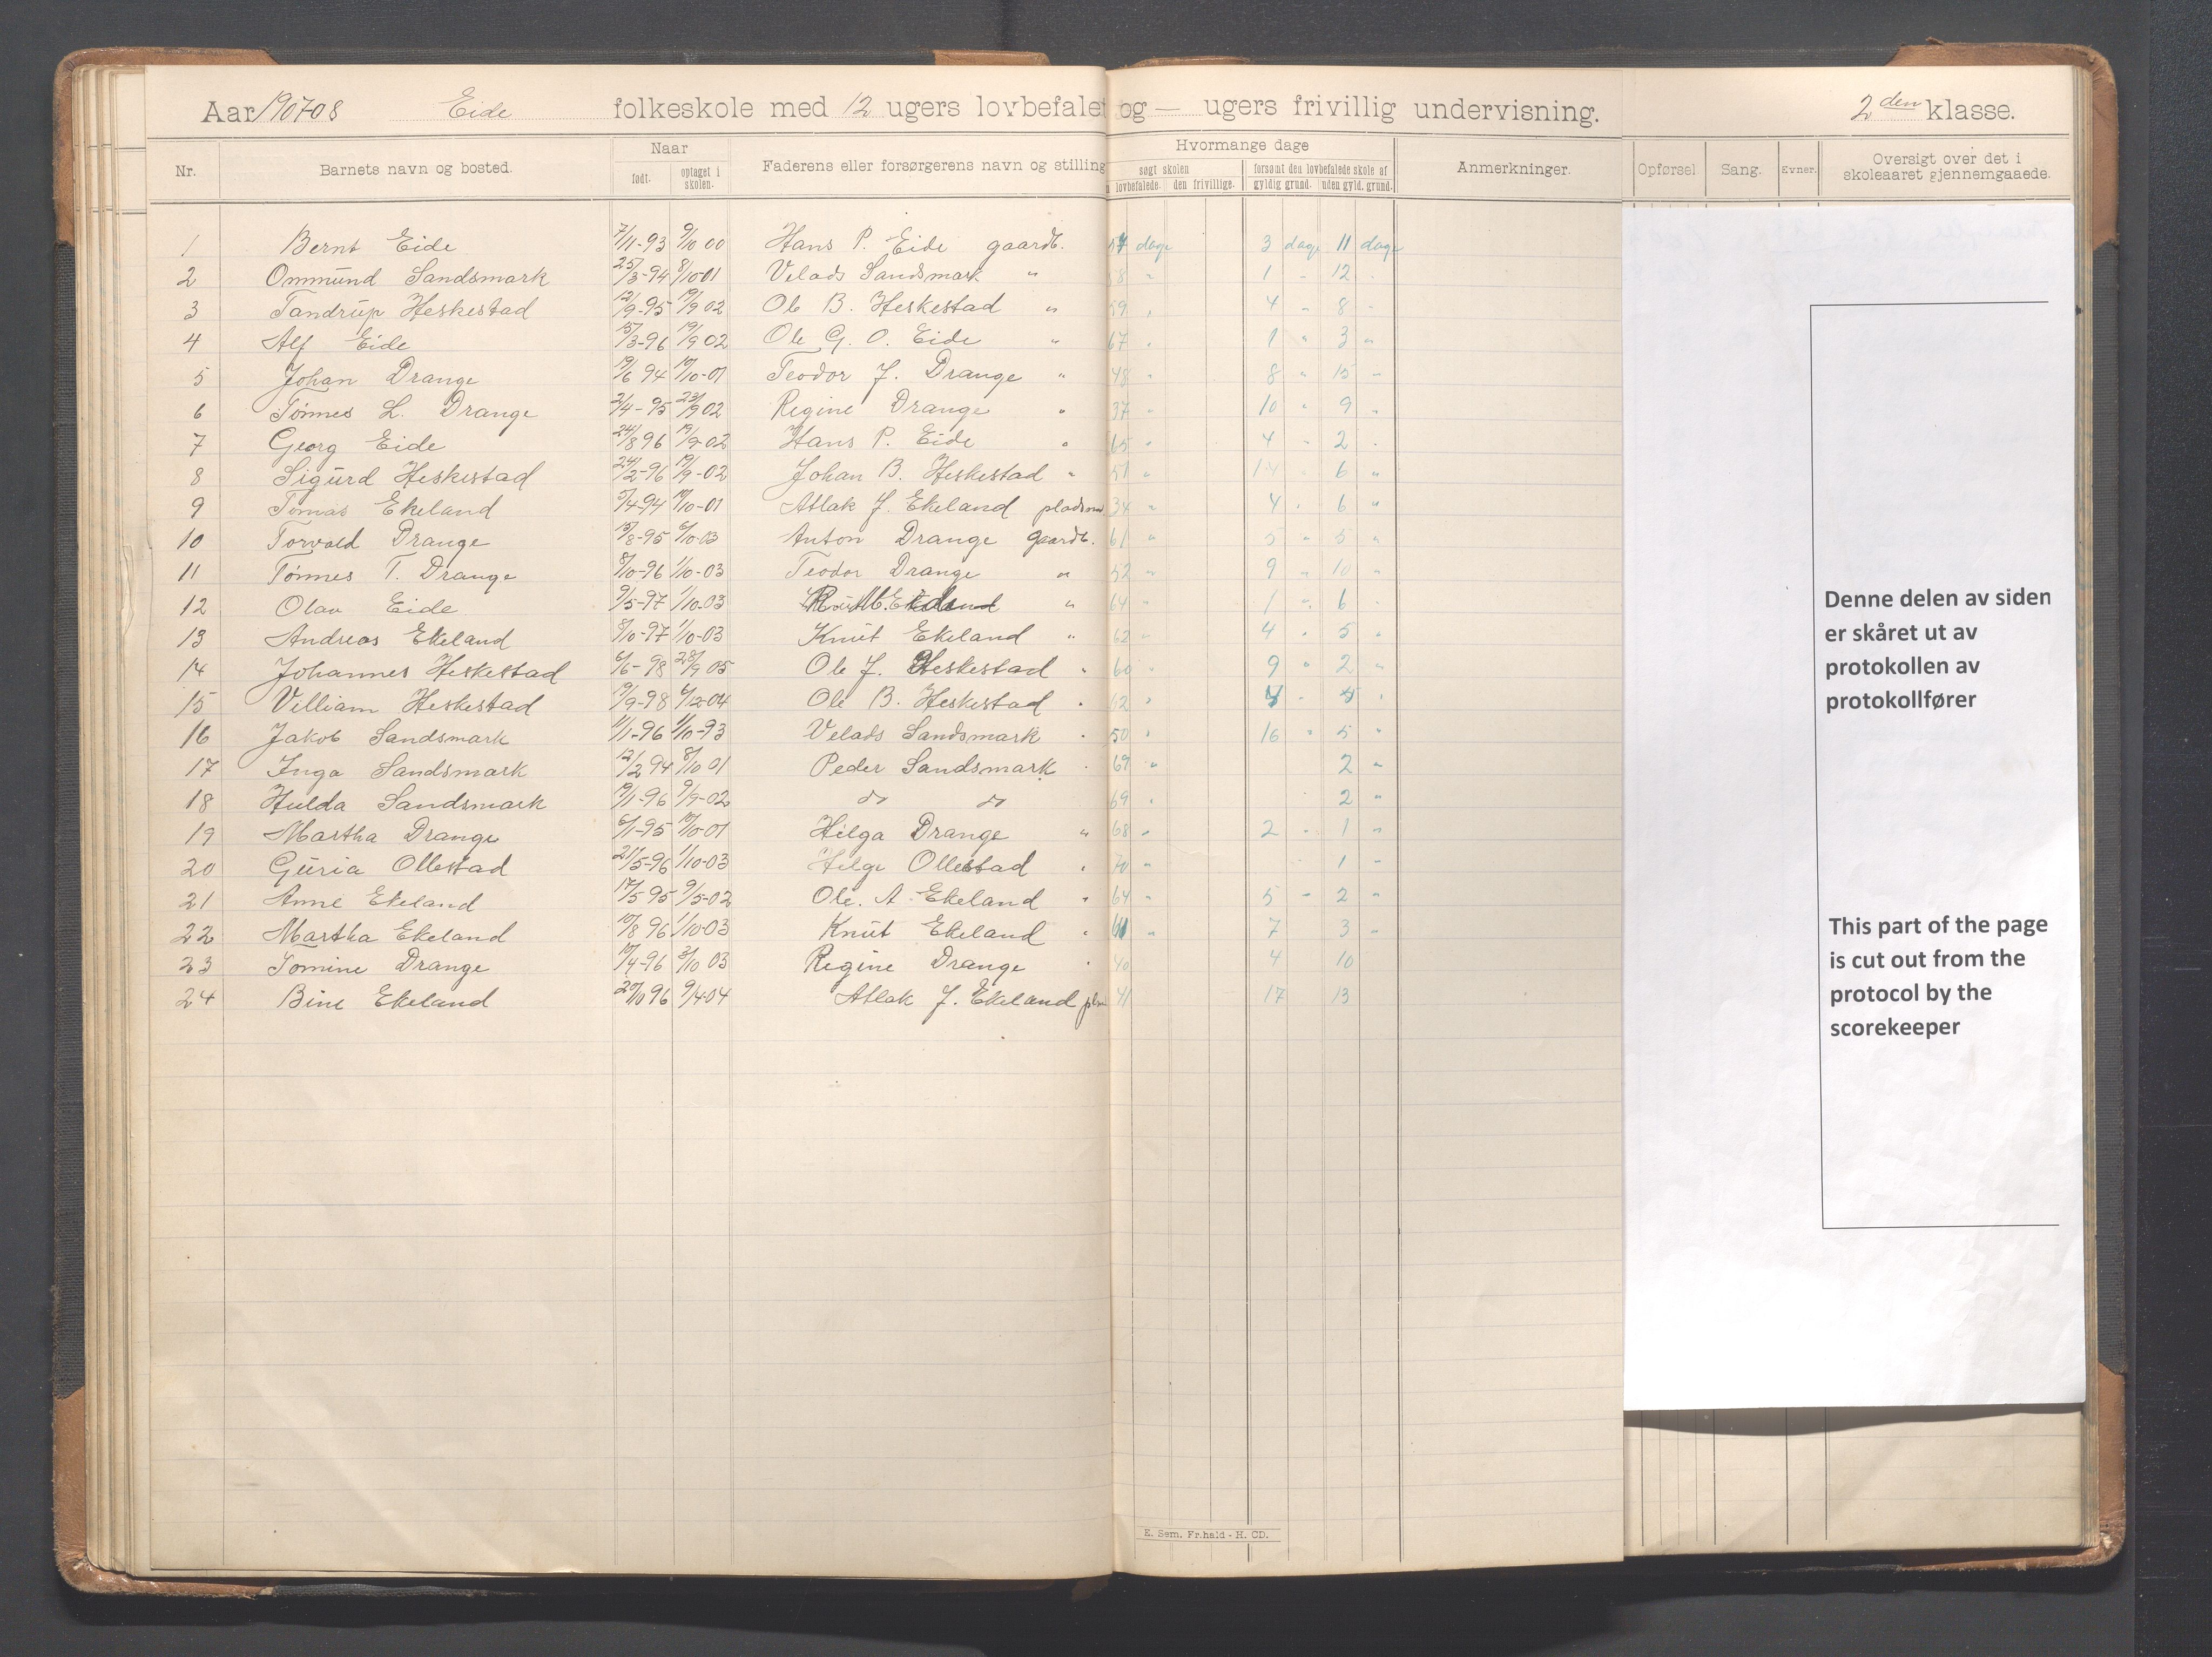 Aar 190708 Eide folkeskole med 12 ugers lovbefalet og — ugers frivillig undervisning. 2den klasse.
Nr. Barnets navn og bosted. Naar født. optaget i skolen. Faderens eller forsørgerens navn og stilling Hvormange dage søgt skolen lovbefalede. den frivillige. forsømt den lovbefalede skole af gyldig grund. uden gyld. grund. Anmerkninger. Opførsel Sang. Evner. Oversigt over det i skoleaaret gjennemgaaede.
1 Bernt Eide 7/11-93 9/10 00 Hans P. Eide gaardb. 57 dage 3 dage 11 dage
2 Ommund Sandsmark 25/3-94 8/10-01 Velads Sandsmark " 58 " 1 " 12 "
3 Tandrup Heskestad 12/9-95 19/9 02 Ole B. Heskestad " 59 " 4 " 8 "
4 Alf Eide 15/3-96 19/9 02 Ole G. O. Eide " 67 " 1 " 3 "
5 Johan Drange 19/6 94 10/10-01 Teodor J. Drange " 48 " 8 " 15 "
6 Tønnes L. Drange 2/4-95 23/9 02 Regine Drange " 37 " 10 " 9 "
7 Georg Eide 24/8 96 19/9-02 Hans P. Eide " 65 " 4 " 2 "
8 Sigurd Heskestad 24/2-96 19/9-02 Johan B. Heskestad " 51 " 14 " 6 "
9 Tomas Ekeland 5/4-94 10/10-01 Atlak J. Ekeland 34 " 4 " 6 "
10 Torvald Drange 15/8-95 6/10-03 Anton Drange gaardb. 61 " 5 " 5 "
11 Tønnes T. Drange 8/10-96 1/10-03 Teodor Drange " 52 " 9 " 10 "
12 Olav Eide 9/5-97 1/10-03 " 64 " 1 " 6 "
13 Andreas Ekeland 8/10-97 1/10-03 Knut Ekeland " 62 " 4 " 5 "
14 Johannes Heskestad 6/6-98 28/9 05 Ole J. Heskestad " 60 " 9 " 2 "
15 Villiam Heskestad 19/9-98 6/12-04 Ole B. Heskestad " 62 " 4 " 4 "
16 Jakob Sandsmark 11/1-96 1/10-93 Velads Sandsmark " 50 " 16 " 5 "
17 Inga Sandsmark 12/2 94 8/10 01 Peder Sandsmark " 69 " 2 "
18 Hulda Sandsmark 19/1-96 9/9-02 do do 69 " 2 "
19 Martha Drange 6/1-95 10/10-01 Helga Drange " 68 " 2 " 1 "
20 Guria Ollestad 21/5-96 1/10-03 Helge Ollestad " 70 " 1 "
21 Anne Ekeland 17/5 95 9/5-02 Ole. A. Ekeland " 64 " 5 " 2 "
22 Martha Ekeland 10/8 96 1/10-03 Knut Ekeland " 61 " 7 " 3 "
23 Tomine Drange 10/4-96 2/10 03 Regine Drange " 40 4 10
24 Bine Ekeland 20/10 96 9/4-04 Atlak J. Ekeland 41 17 13
Denne delen av siden
er skåret ut av
protokollen av
protokollfører
This part of the page
is cut out from the
protocol by the
scorekeeper
E. Sem. Fr.hald - H. CD.